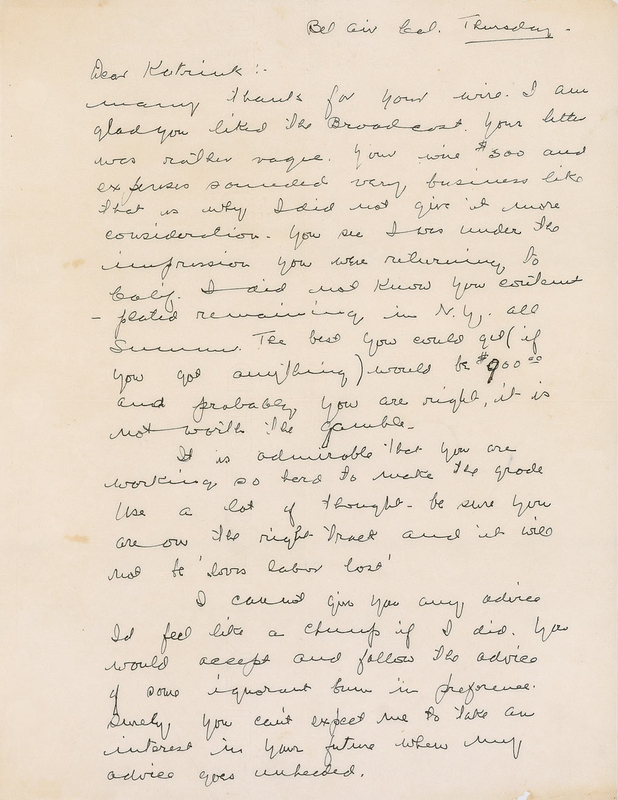 Bel Air Cal. Thursday -
Dear Katrink :-
many thanks for your wire. I am
glad you liked the Broadcast. Your letter
was rather vague. Your wire $300 and
expenses sounded very business like
that is why I did not give it more
consideration. You see I was under the
impression you were returning to
Calif. I did not know you contem
- plated remaining in N.Y. all
Summer. The best you could get (if
you got anything) would be $900.00
and probably you are right, it is
not worth the gamble.
It is admirable that you are
working so hard to make the grade
Use a lot of thought - be sure you
are on the right track and it will
not be 'loves labor lost'
I cannot give you any advice
Id feel like a chump if I did. You
would accept and follow the advice
of some ignorant bum in preference.
Surely you can't expect me to take an
interest in your future when my
advice goes unheeded.